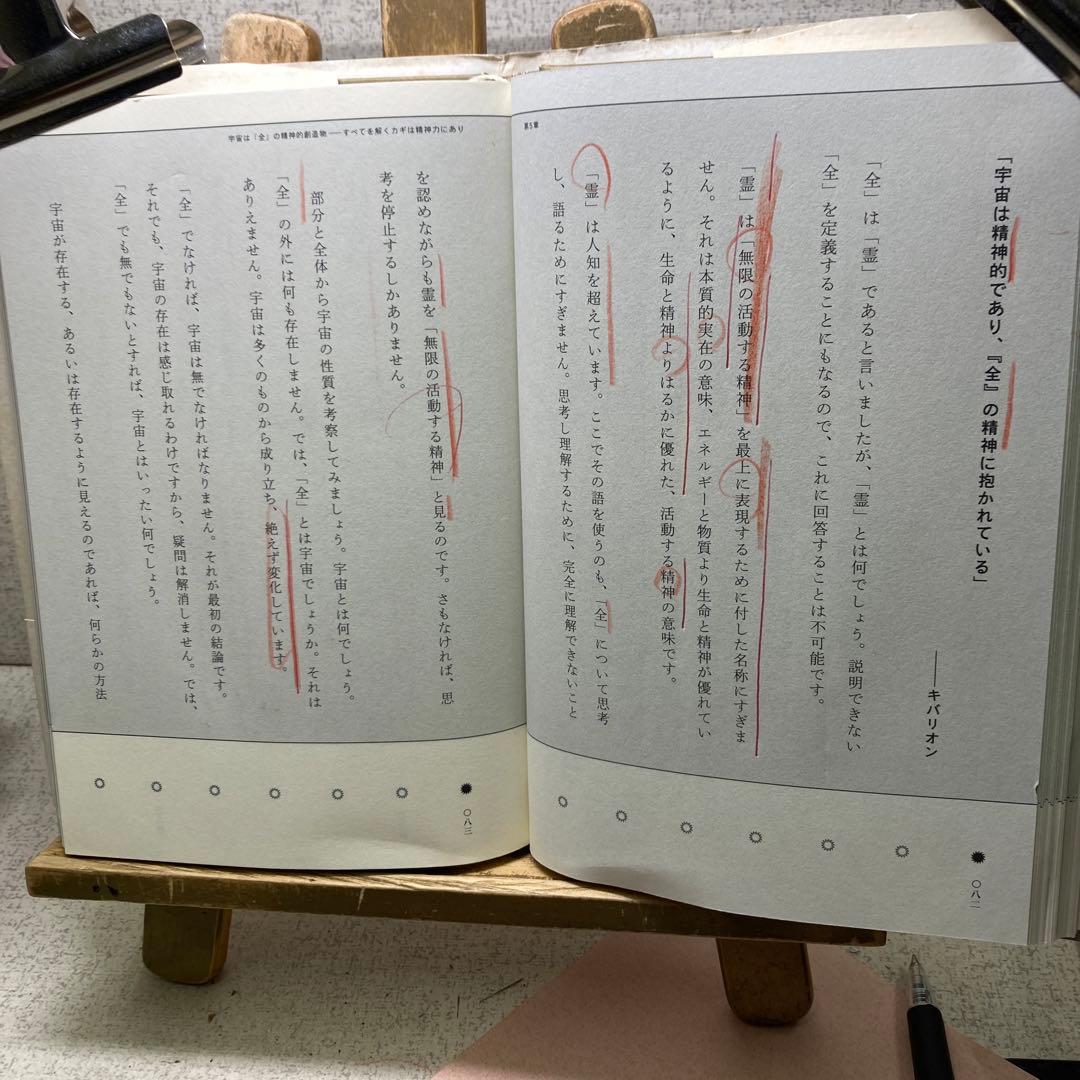 第5章
「宇宙は精神的であり、『全』の精神に抱かれている」
――キバリオン
「全」は「霊」であると言いましたが、「霊」とは何でしょう。説明できない
「全」を定義することにもなるので、これに回答することは不可能です。
「霊」は「無限の活動する精神」を最上に表現するために付した名称にすぎま
せん。それは本質的実在の意味、エネルギーと物質より生命と精神が優れてい
るように、生命と精神よりはるかに優れた、活動する精神の意味です。
「霊」は人知を超えています。ここでその語を使うのも、「全」について思考
し、語るためにすぎません。思考し理解するために、完全に理解できないこと
〇八二
宇宙は『全』の精神的創造物――すべてを解くカギは精神力にあり
を認めながらも霊を「無限の活動する精神」と見るのです。さもなければ、思
考を停止するしかありません。
部分と全体から宇宙の性質を考察してみましょう。宇宙とは何でしょう。
「全」の外には何も存在しません。では、「全」とは宇宙でしょうか。それは
ありえません。宇宙は多くのものから成り立ち、絶えず変化しています。
「全」でなければ、宇宙は無でなければなりません。それが最初の結論です。
それでも、宇宙の存在は感じ取れるわけですから、疑問は解消しません。では、
「全」でも無でもないとすれば、宇宙とはいったい何でしょう。
宇宙が存在する、あるいは存在するように見えるのであれば、何らかの方法
〇八三